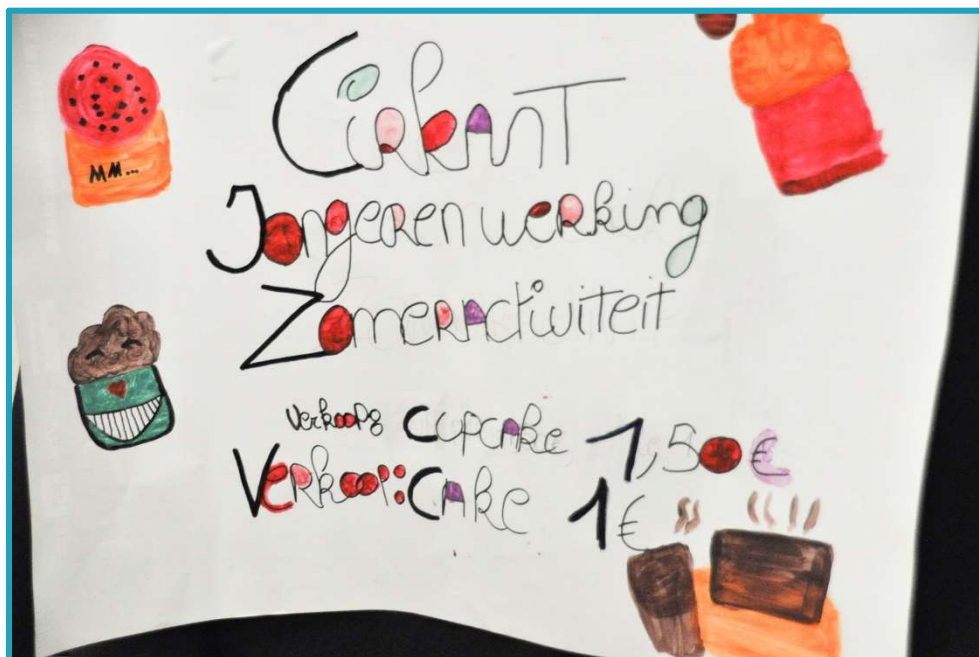 MM...
CirkANT
JongeRen weRking
ZomeRActiviteit
VeRkoop: Cupcake 1,50€
VeRkoop: CAke 1€